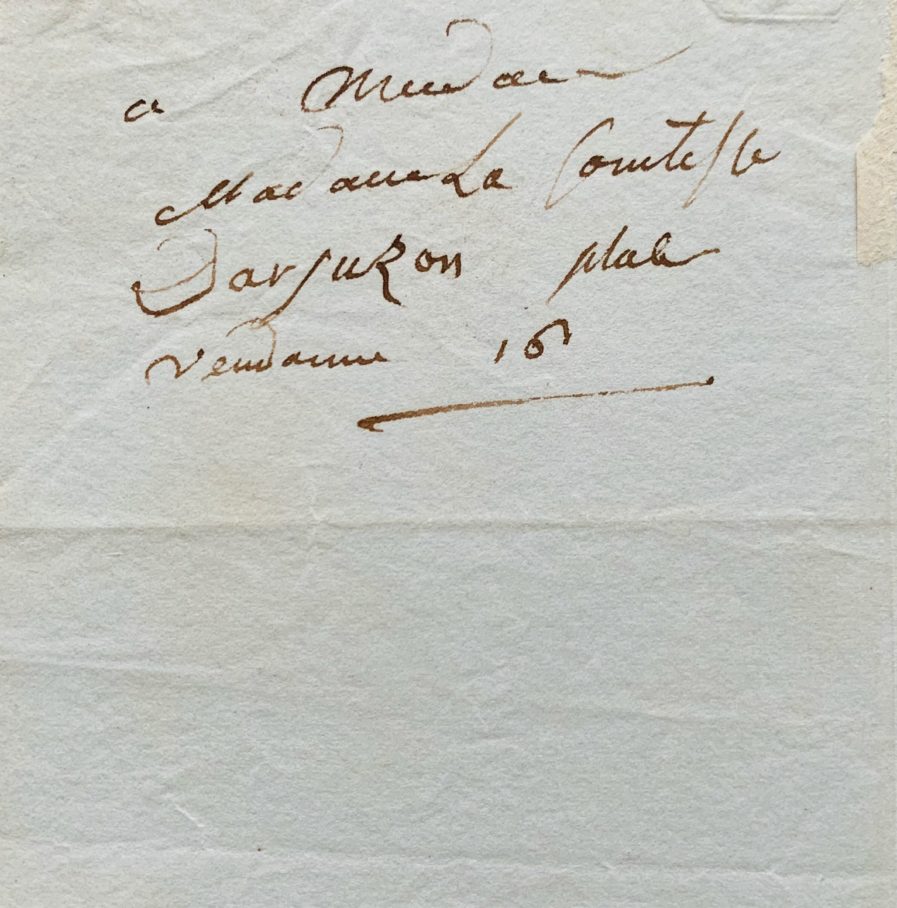 a Madame
Madame La Comtesse
Darjuzon place
vendome 16